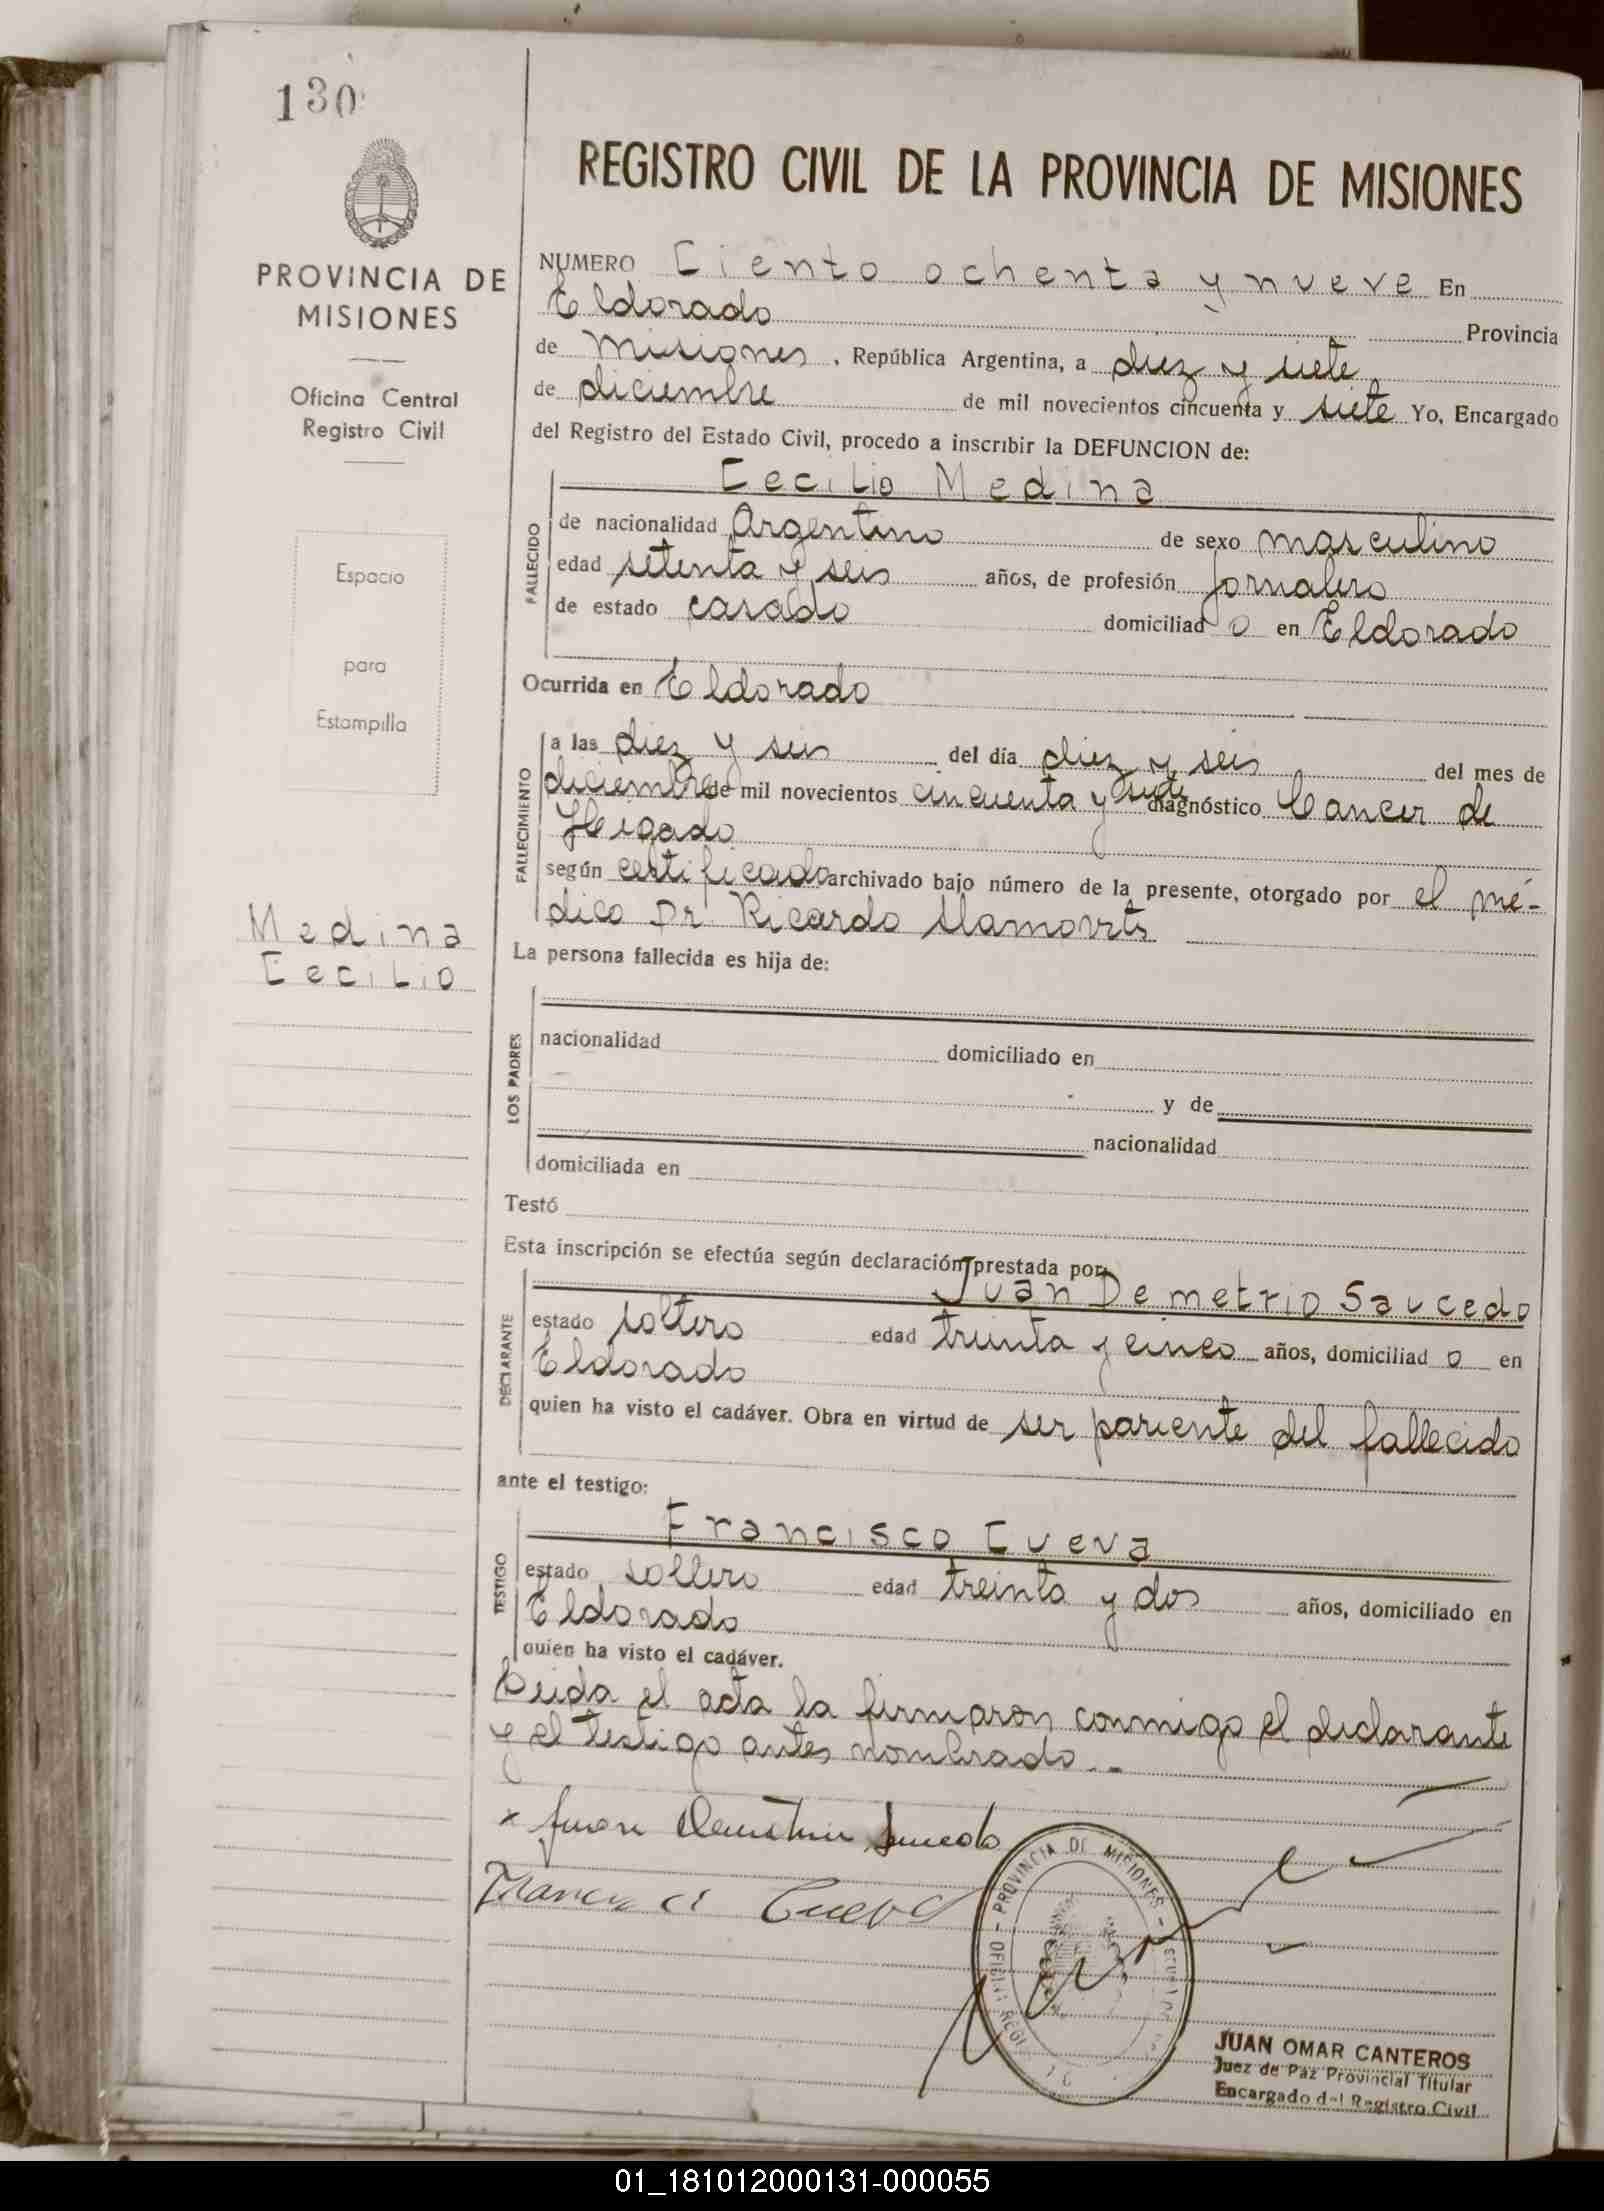 130
PROVINCIA DE
MISIONES
Oficina Central
Registro Civil
Espacio
para
Estampilla
Medina
Cecilio
REGISTRO CIVIL DE LA PROVINCIA DE MISIONES
NUMERO Ciento ochenta y nueve En
Eldorado Provincia
de Misiones, República Argentina, a diez y siete
de diciembre de mil novecientos cincuenta y siete Yo, Encargado
del Registro del Estado Civil, procedo a inscribir la DEFUNCION de:
Cecilio Medina
FALLECIDO
de nacionalidad Argentino de sexo masculino
edad setenta y seis años, de profesión Jornalero
de estado casado domiciliad o en Eldorado
Ocurrida en Eldorado
FALLECIMIENTO
a las diez y seis del día diez y seis del mes de
diciembre de mil novecientos cincuenta y siete diagnóstico Cancer de
Higado
según certificado archivado bajo número de la presente, otorgado por el mé-
dico Dr Ricardo
La persona fallecida es hija de:
LOS PADRES
nacionalidad domiciliado en
y de
nacionalidad
domiciliada en
Testó
Esta inscripción se efectúa según declaración prestada por:
Juan Demetrio Saucedo
DECLARANTE
estado soltero edad treinta y cinco años, domiciliad o en
Eldorado
quien ha visto el cadáver. Obra en virtud de ser pariente del fallecido
ante el testigo:
Francisco Cueva
TESTIGO
estado soltero edad treinta y dos años, domiciliado en
Eldorado
quien ha visto el cadáver.
Leida el acta la firmaron conmigo el declarante
y el testigo antes nombrado.--
x Juan Demetrio Saucedo
Francisco Cueva
PROVINCIA DE MISIONES
JUAN OMAR CANTEROS
Juez de Paz Provincial Titular
Encargado del Registro Civil
01_181012000131-000055